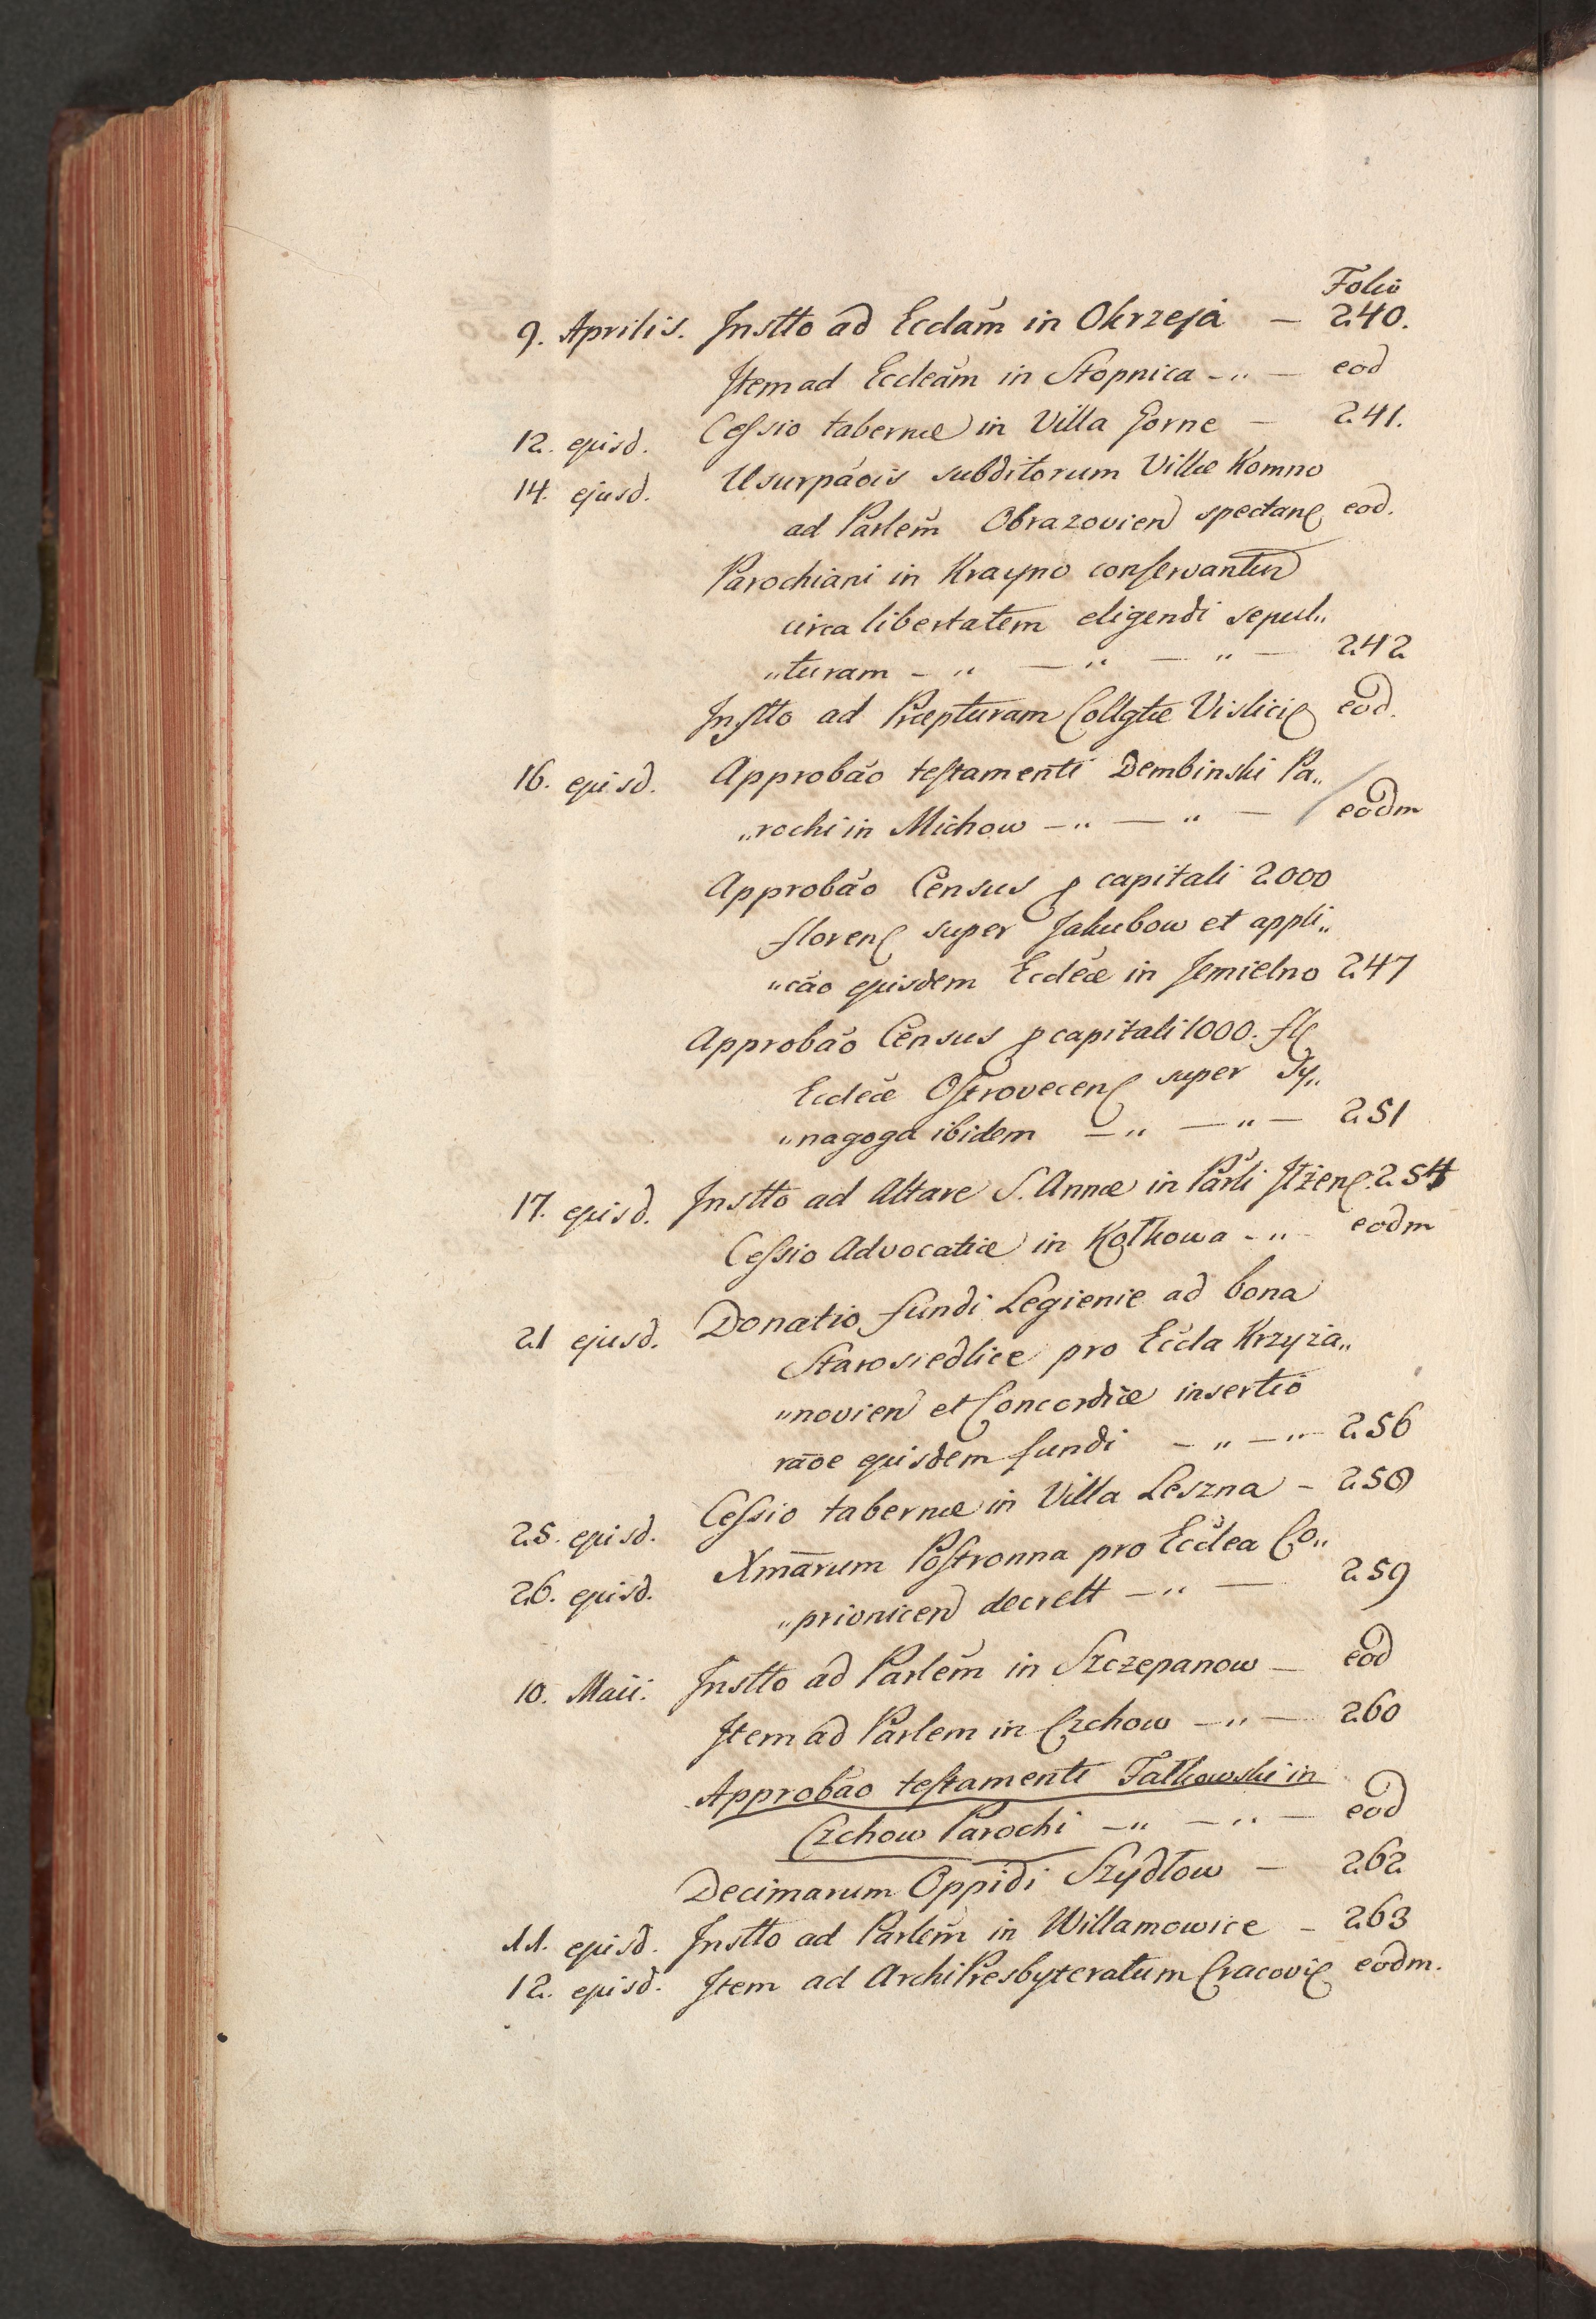 Folio
9. Aprilis. Instto ad Ecclam in Okrzeja — 240.
Item ad Eccleam in Stopnica -„- eod
12. ejusd. Cessio tabernæ in Villa Gorne — 241.
14. ejusd. Usurpãois subditorum Villæ Komno
ad Parlem Obrazovien spectan eod.
Parochiani in Krayno conservantur
circa libertatem eligendi sepul„
„turam - „ — „ — „ — 242
Instto ad Præpturam Collgtæ Vislici eod.
16. ejusd. Approbão testamenti Dembinski Pa„
„rochi in Michow -„ — „ — eodm
Approbão Census p capitali 2000
floren super Jakubow et appli„
„cão ejusdem Ecclæ in Jemielno 247
Approbão Census p capitali 1000. fl
Eccleæ Ostrovecen super Sy„
„nagoga ibidem -„ —„— 251
17. ejusd. Instto ad Altare S. Annæ in Parli Ilżen. 254
Cessio Advocatiæ in Kotkowa -„- eodm
21 ejusd. Donatio fundi Legienie ad bona
Starosiedlice pro Eccla Krzyża„
„novien et Concordiæ insertio
rãoe ejusdem fundi -„-„- 256
25. ejusd. Cessio tabernæ in Villa Leszna - 258
26. ejusd. Xmãrum Postronna pro Ecclea Co„
„prionicen decrett -„ — 259
10. Maii. Instto ad Parlem in Szczepanow — eod
Item ad Parlem in Czchow -„- 260
Approbão testamenti Falkowski in
Czchow Parochi -„ -„- eod
Decimarum Oppidi Szydłow — 262
11. ejusd. Instto ad Parlem in Willamowice - 263
12. ejusd. Item ad ArchiPresbyteratum Cracovi eodm.